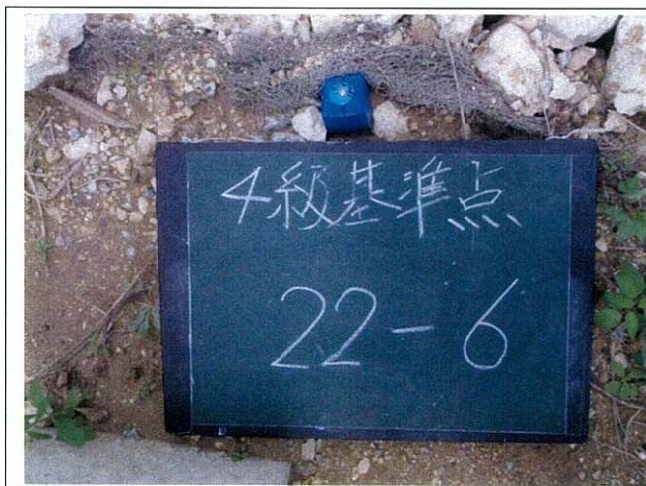 4級基準点
22-6